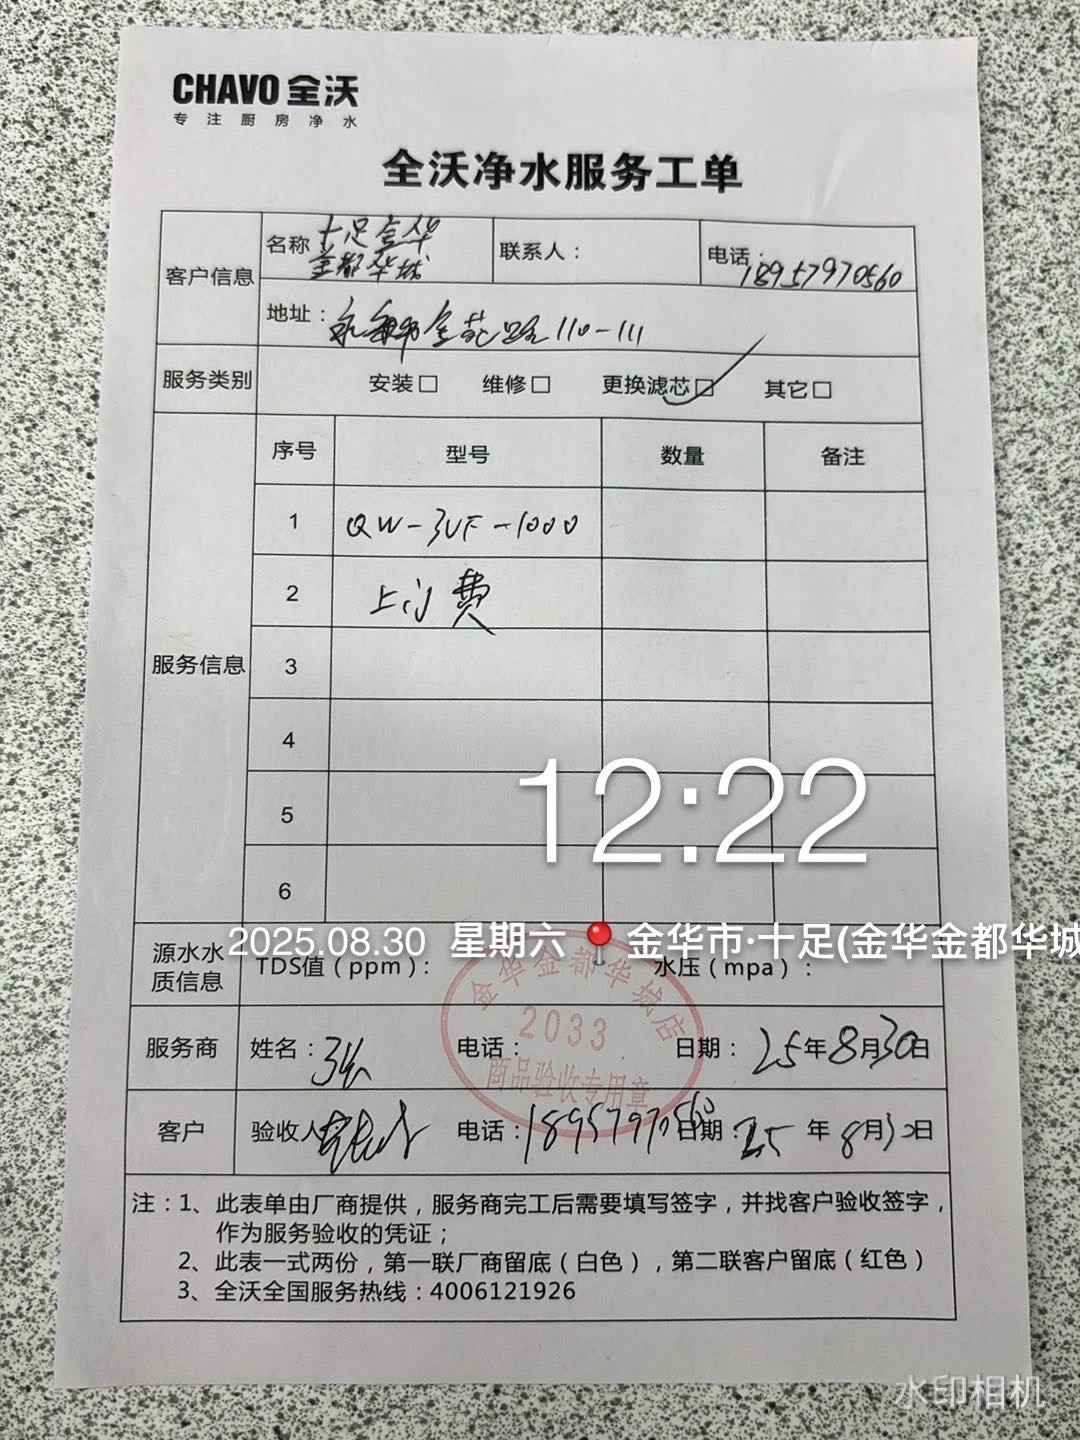 CHAVO 全沃
专注厨房净水
全沃净水服务工单
客户信息 名称 十足金华 金都华城 联系人： 电话：18957970560
地址： 永和 金苑路110-111
服务类别 安装□ 维修□ 更换滤芯□ 其它□
服务信息 序号 型号 数量 备注
1 QW-3UF-1000
2 上门费
3
4
12:22
5
6
2025.08.30 星期六 金华市·十足(金华金都华城
源水水质信息 TDS值（ppm）： 水压（mpa）：
金华金都华城店
2033
商品验收专用章
服务商 姓名： 电话： 日期： 25年8月30日
客户 验收人 电话：18957970560 日期：25年8月30日
注：1、此表单由厂商提供，服务商完工后需要填写签字，并找客户验收签字，
作为服务验收的凭证；
2、此表一式两份，第一联厂商留底（白色），第二联客户留底（红色）
3、全沃全国服务热线：4006121926
水印相机